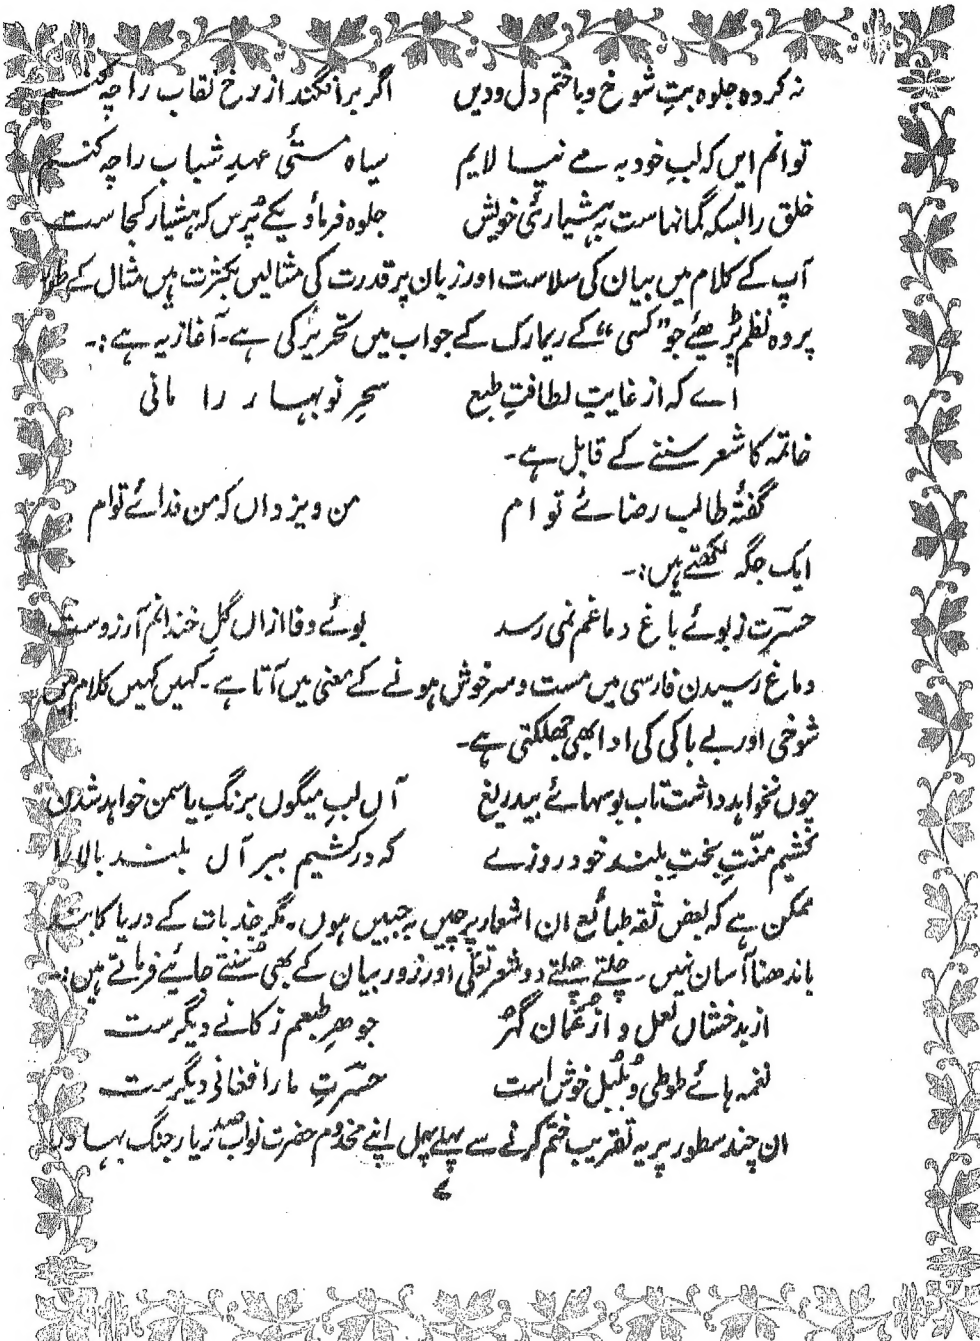 نہ کردہ جلوہ بتِ شوخ و باختم دل و دیں اگر برافگند از رخ نقاب را چہ کنم
توانم ایں کہ لبِ خود بہ مے نیالایم سیاہ مستیٔ عہدِ شباب را چہ کنم
خلق را بسکہ گمانہاست بہ ہشیاریٔ خویش جلوہ فرما و یکے پُرس کہ ہشیار کجاست
آپ کے کلام میں بیان کی سلاست اور زبان پر قدرت کی مثالیں بکثرت ہیں مثال کے طور
پر وہ نظم پڑھیے جو "کسی" کے ریمارک کے جواب میں تحریر کی ہے۔ آغاز یہ ہے:۔
اے کہ از غایتِ لطافتِ طبع سحرِ نوبہار را مانی
خاتمہ کا شعر سننے کے قابل ہے۔
گفتۂ طالب رضائے تو ام من و یزداں کہ من فدائے توام
ایک جگہ لکھتے ہیں:۔
حسرتؔ ز بوئے باغ دماغم نمی رسد بوئے وفا ازاں گلِ خندانم آرزوست
دماغ رسیدن فارسی میں مست و سرخوش ہونے کے معنی میں آتا ہے۔ کہیں کہیں کلام میں
شوخی اور بے باکی کی ادا بھی جھلکتی ہے۔
چوں نخواہد داشت تاب بوسہائے بیدریغ آں لبِ میگوں برنگِ یاسمن خواہد شدن
کشیم منّتِ بختِ بلند خود روزے کہ درکشیم ببر آں بلند بالا را
ممکن ہے کہ بعض ثقہ طبائع ان اشعار پر چیں بہ جبیں ہوں۔ مگر جذبات کے دریا کا بند
باندھنا آسان نہیں۔ چلتے چلتے دو شعر تعلّی اور زورِ بیان کے بھی سُنتے جائیے فرماتے ہیں:۔
از بدخشاں لعل و از عُمّان گہر جوہرِ طبعم ز کانے دیگرست
نغمہ ہائے طوطی و بُلبُل خوش است حسرتِؔ ما را فغانی دیگرست
ان چند سطور پر یہ تقریب ختم کرنے سے پہلے پہل اپنے مخدوم حضرت نواب صدر یار جنگ بہادر
ے